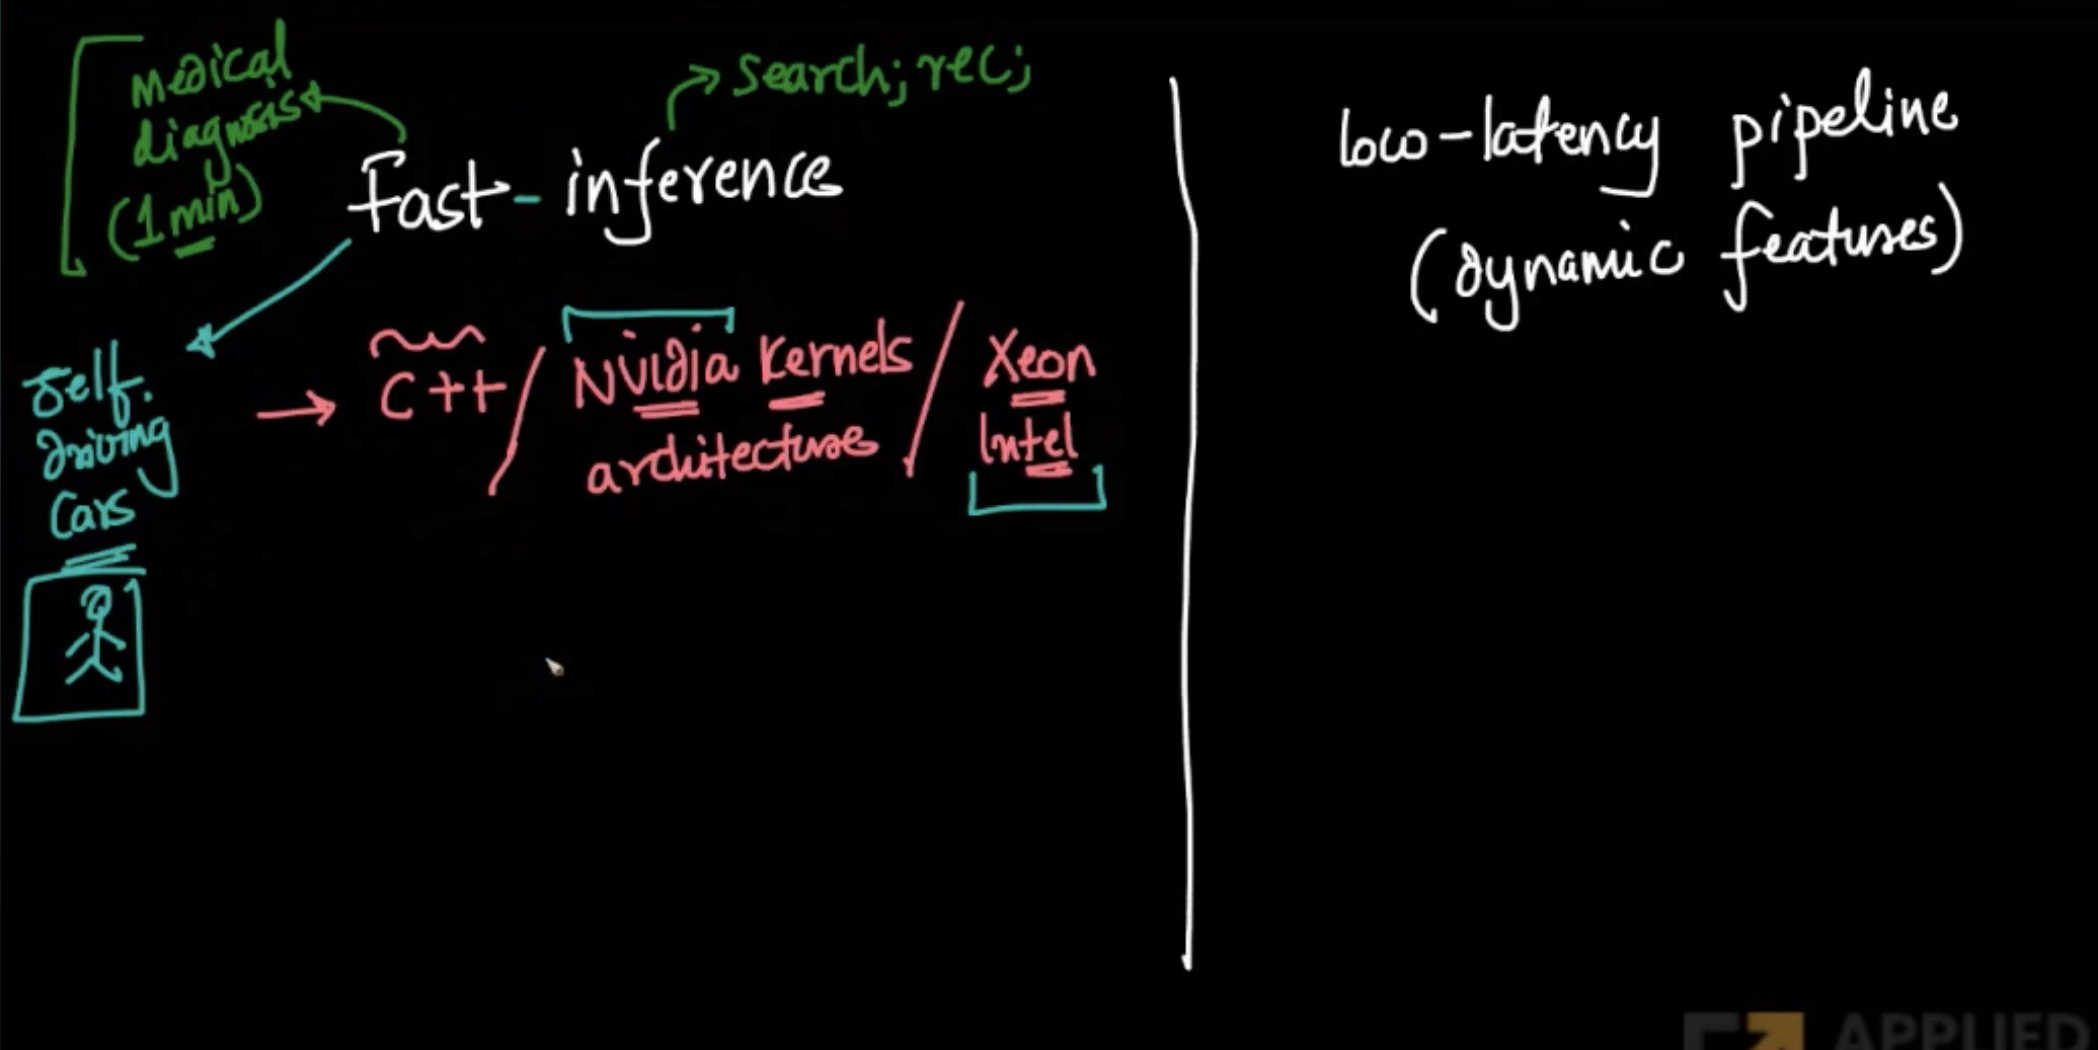 medical
diagnosis
(1 min)
search; rec;
Fast-inference
Self.
Driving
Cars
→ C++ / Nvidia Kernels
architectures / Xeon
Intel
low-latency pipeline
(dynamic features)
APPLIED